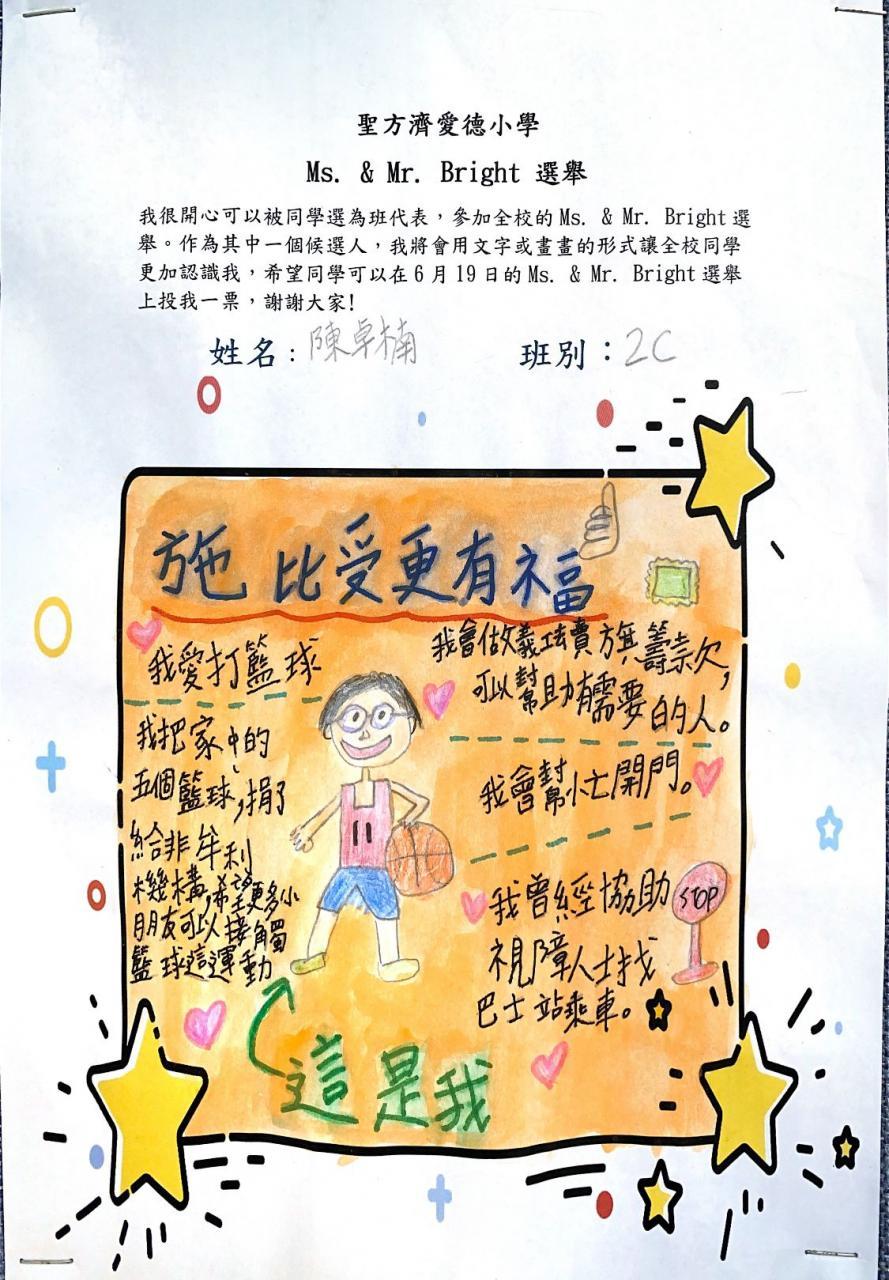 聖方濟愛德小學
Ms. & Mr. Bright 選舉
我很開心可以被同學選為班代表，參加全校的Ms. & Mr. Bright 選
舉。作為其中一個候選人，我將會用文字或畫畫的形式讓全校同學
更加認識我，希望同學可以在6月19日的Ms. & Mr. Bright 選舉
上投我一票，謝謝大家!
姓名：陳卓楠
班別：2C
施比受更有福
我愛打籃球
我把家中的
五個籃球，捐了
給非牟利
機構，希望更多小
朋友可以接觸
籃球這運動
11
這是我
我會做義工賣旗，籌款，
可以幫助有需要的人。
我會幫忙開門。
我曾經協助
視障人士找
巴士站乘車。
STOP